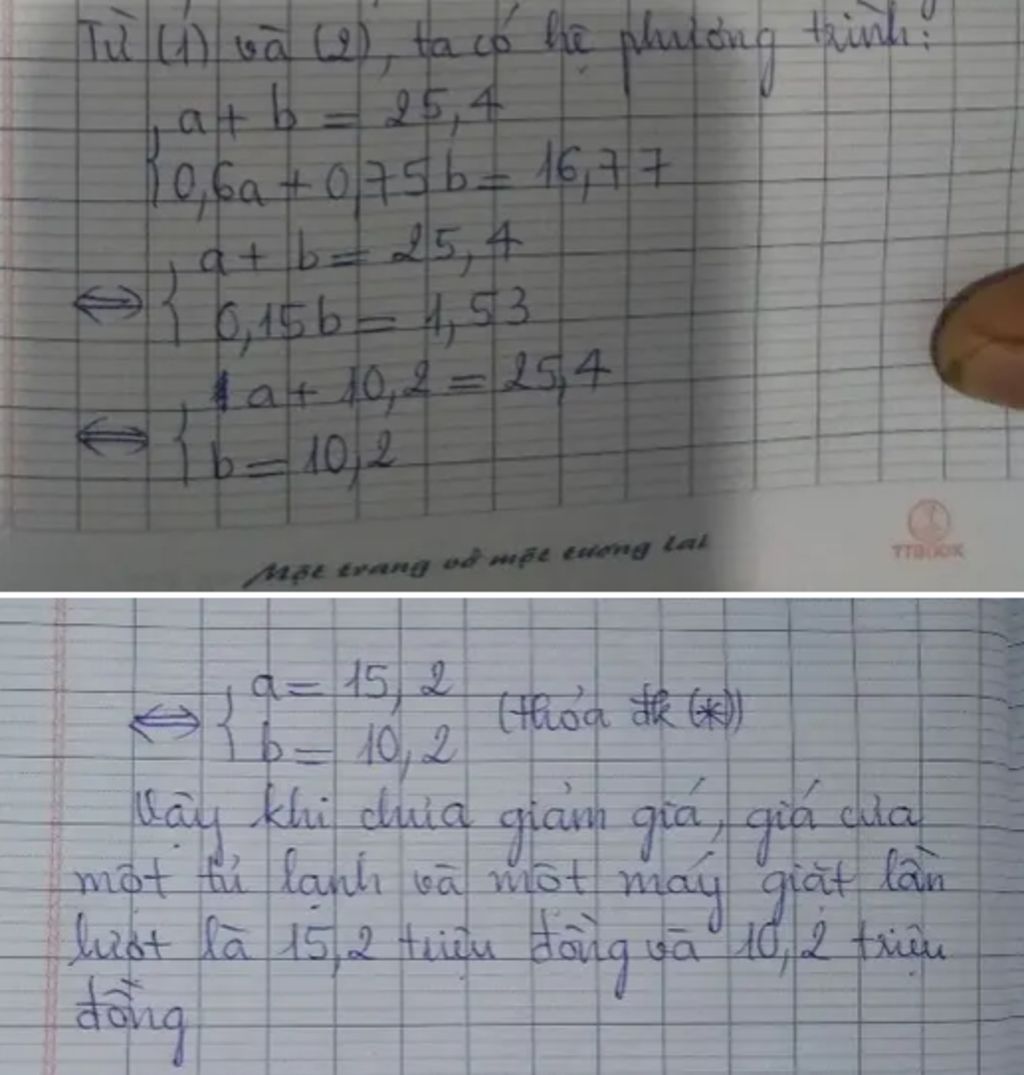 Từ (1) và (2), ta có hệ phương trình:
a + b = 25,4
0,6a + 0,75b = 16,77
a + b = 25,4
⟺ {
0,15b = 1,53
1a + 10,2 = 25,4
⟺ {
b = 10,2
Một trang vở một tương lai
TTBOOK
a = 15,2
⟺ { (thỏa đk (*))
b = 10,2
Vậy khi chưa giảm giá, giá của
một tủ lạnh và một máy giặt lần
lượt là 15,2 triệu đồng và 10,2 triệu
đồng